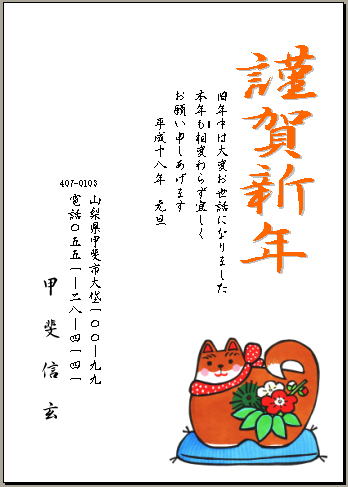 謹賀新年
旧年中は大変お世話になりました
本年も相変わらず宜しく
お願い申しあげます
平成十八年 元旦
407-0103
山梨県甲斐市大垈一〇〇―九九
電話〇五五一―二八―四一四一
甲斐信玄